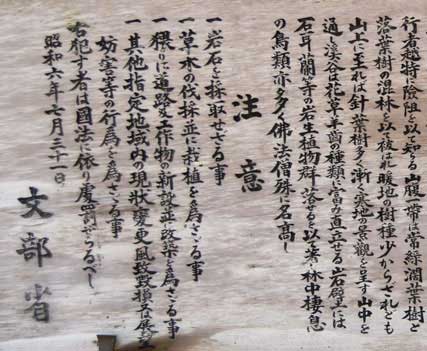 行者越特に險阻を以て知らる山腹一帯は常緑濶葉樹と
落葉樹の混林を以て被はれ暖地の樹種少からざれども
山上に至れば針葉樹多く漸く寒地の景觀を呈す山中を
通し溪谷は花草羊歯の種類に富み直立せる岩壁には
石耳蘭等の岩生植物群落あるを以て著る林中棲息
の鳥類亦多く佛法僧殊に名高し
注意
一岩石を採取せざる事
一草木の伐採並に栽植を為さゞる事
一猥りに道路及工作物の新設並改築を為さゞる事
一其他指定地域内の現狀變更風致毀損又は展望
妨害等の行為を為さゞる事
右犯す者は國法に依り處罰せらるべし
昭和六年七月三十一日
文部省